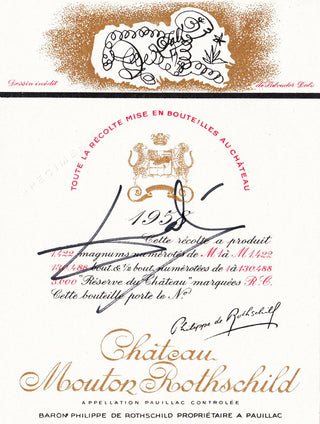 Dessin inédit
de Salvador Dali
TOUTE LA RÉCOLTE MISE EN BOUTEILLES AU CHÂTEAU
1958
Cette récolte a produit
1.422 magnums numérotés de M1 à M1.422
130.488 bout. & ½ bout. numérotées de 1 à 130.488
3.000 "Réserve du Château" marquées R.C.
Cette bouteille porte le No
Philippe de Rothschild
Château
Mouton Rothschild
APPELLATION PAUILLAC CONTROLÉE
BARON PHILIPPE DE ROTHSCHILD PROPRIÉTAIRE A PAUILLAC